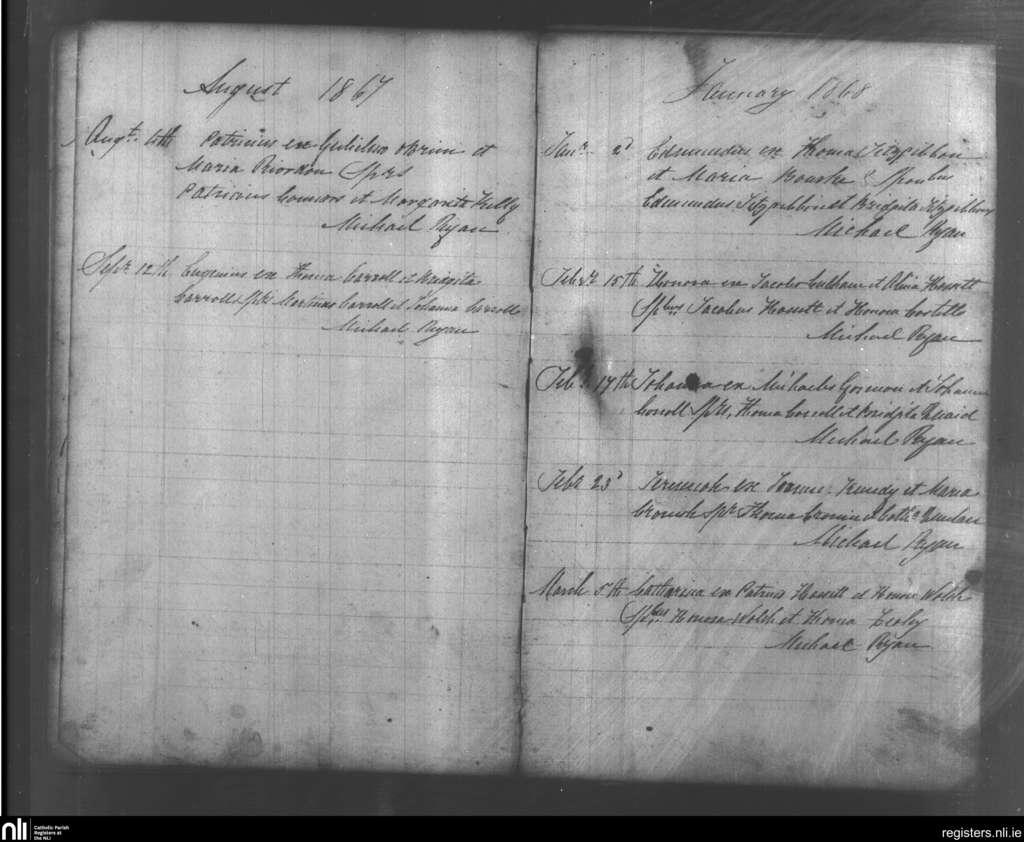 August 1867
Augt. 4th Patricius ex Gulielmo Obrien et
Maria Riordon Sprs
Patricius Connors et Margarita Kelly
Michael Ryan
Sepr. 12th Eugenius ex Thoma Carroll et Bridgita
Carroll Sprs Martinus Carroll et Johanna Carroll
Michael Ryan
January 1868
Janr. 2d Edmundus ex Thoma Fitzgibbon
et Maria Bourke Sponbus
Edmundus Fitzgibbon et Bridgita Fitzgibbon
Michael Ryan
Febr. 15th Honora ex Jacobo et Hassett
Spbus Jacobus Hassett et Honora Costello
Michael Ryan
Feb. 17th Johanna ex Michaeles Gorman et Johanna
Connell Sprs, Thoma Connell et Bridgita Quaid
Michael Ryan
Febr 23d ex et Maria
Spr Thoma Cronin et
Michael Ryan
March 5th Catharina ex Patrius Hassett et Honora Welsh
Spbus Honora Welsh et Thoma
Michael Ryan
nli
Catholic Parish
Registers at
the NLI
registers.nli.ie